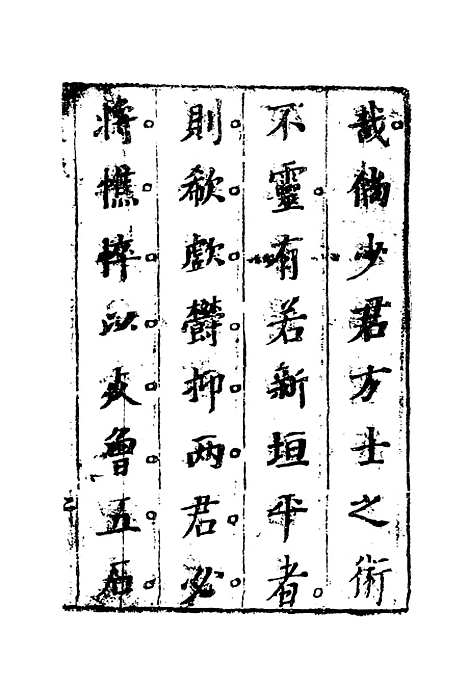 哉倘少君方士之術
不靈有若新垣平者
則欷歔鬱抑兩君必
將憔悴以𠩄魯五石